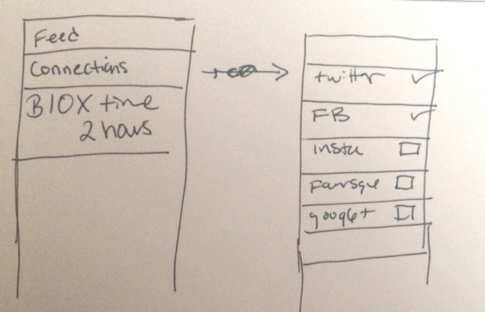 Feed
Connections
BIOX time
2 hours
twitter
FB
insta
foursque
google+